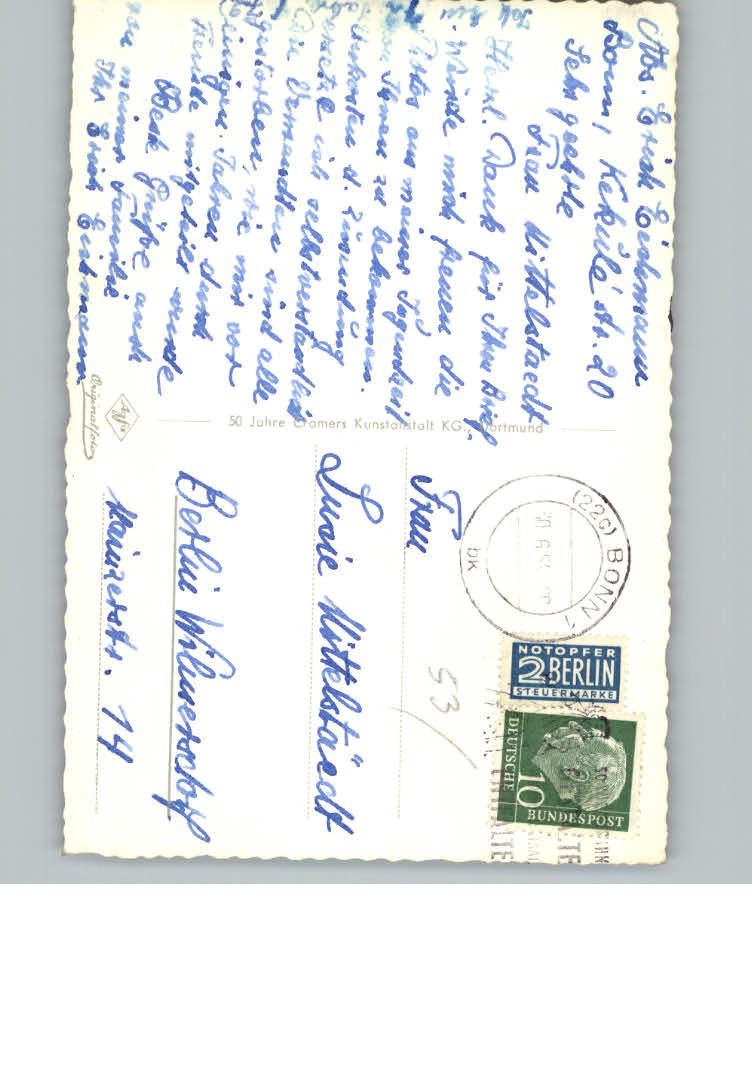 Abs. Erich Eichmann
Bonn, Kekuléstr. 20
Sehr geehrte
Frau Mittelstaedt
Herzl. Dank für Ihren Brief,
Würde mich freuen die
Fotos aus meiner Jugendzeit
von Ihnen zu bekommen.
Unkosten d. Zusendung
ersetze ich selbstverständlich
Die Verwandten sind alle
gestorben, wie mir vor
einigen Jahren durch
Freunde mitgeteilt wurde
Beste Grüße auch
von meiner Familie
Ihr Erich Eichmann
Originalfoto
50 Jahre Cramers Kunstanstalt KG., Dortmund
(22c) BONN 1
bk
NOTOPFER
2 BERLIN
STEUERMARKE
DEUTSCHE
10
BUNDESPOST
53
Frau
Lucie Mittelstaedt
Berlin Wilmersdorf
Mainzerstr. 14